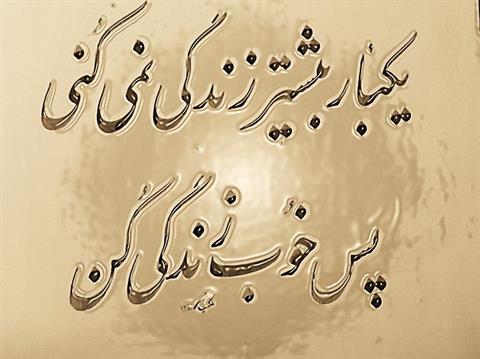 یکبار بیشتر زندگی نمی کنی
پس خوب زندگی کن